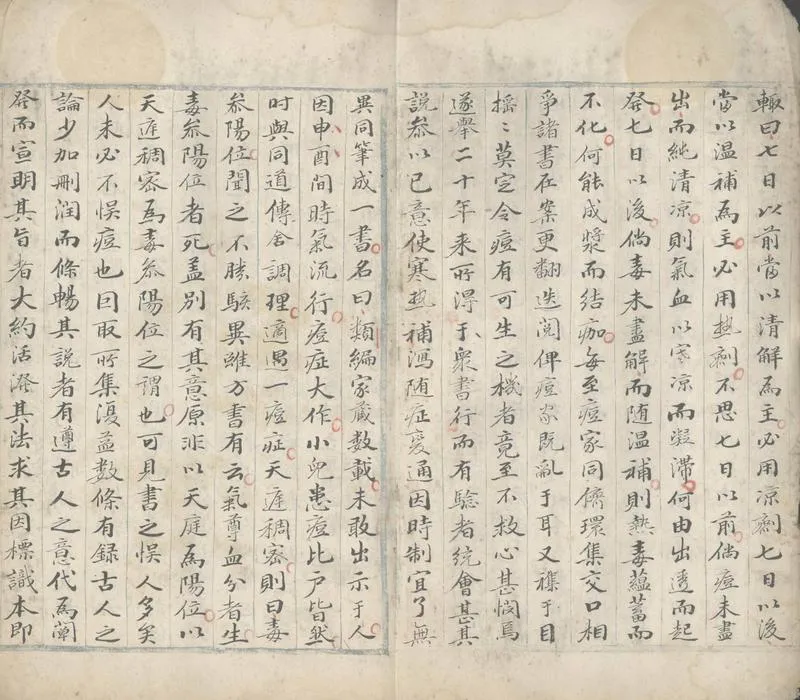 輙曰七日以前當以清解爲主必用凉劑七日以後
當以温補爲主必用热劑不思七日以前倘痘未盡
出而純清凉則氣血以寒凉而凝滯何由出透而起
發七日以後倘毒未盡解而随温補則熱毒蘊蓄而
不化何能成漿而结痂每至痘家同儕環集交口相
爭諸書在案更翻迭阅俾痘家既亂于耳又襍于目
摇〻莫定令痘有可生之機者竟至不救心甚悯焉
遂舉二十年来所得于衆書行而有驗者统會甚其
說叅以已意使寒热補瀉随症変通因时制宜了無
異同筆成一書名曰類編家蔵数載未敢出示于人
因申酉間時氣流行痘症大作小兒患痘比户皆然
时與同道傳舍調理適遇一痘症天庭稠密則曰毒
叅陽位聞之不勝駭異雖方書有云氣尊血分者生
毒叅陽位者死盖别有其意原非以天庭爲陽位以
天庭稠密爲毒叅陽位之謂也可見書之悮人多矣
人未必不悮痘也因取所集復益数條有録古人之
論少加刪润而條暢其説者有遵古人之意代爲闡
發而宣明其旨者大約活潑其法求其因標識本即